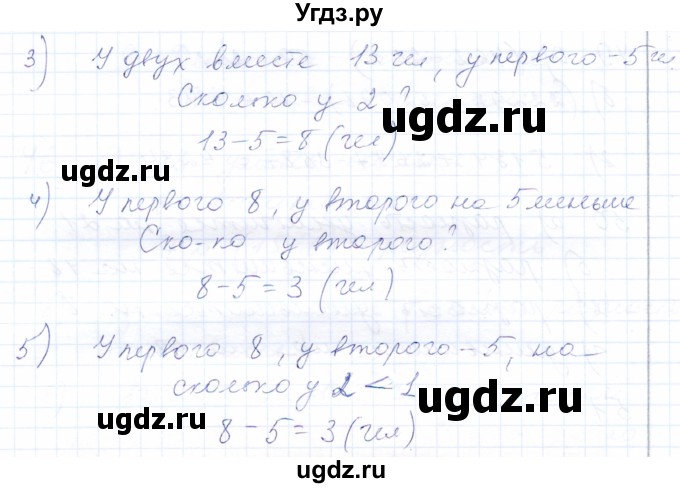 Угдз.ру
3) У двух вместе 13 чел, у первого - 5 ч.
Сколько у 2?
13-5=8 (чел)
ugdz.ru ugdz.ru
4) У первого 8, у второго на 5 меньше
Ско-ко у второго?
ugdz.ru
8-5=3 (чел)
ugdz.ru
5) У первого 8, у второго - 5, на-
сколько у 2 < 1
ugdz.ru ugdz.ru
8-5=3 (чел)
ugdz.ru